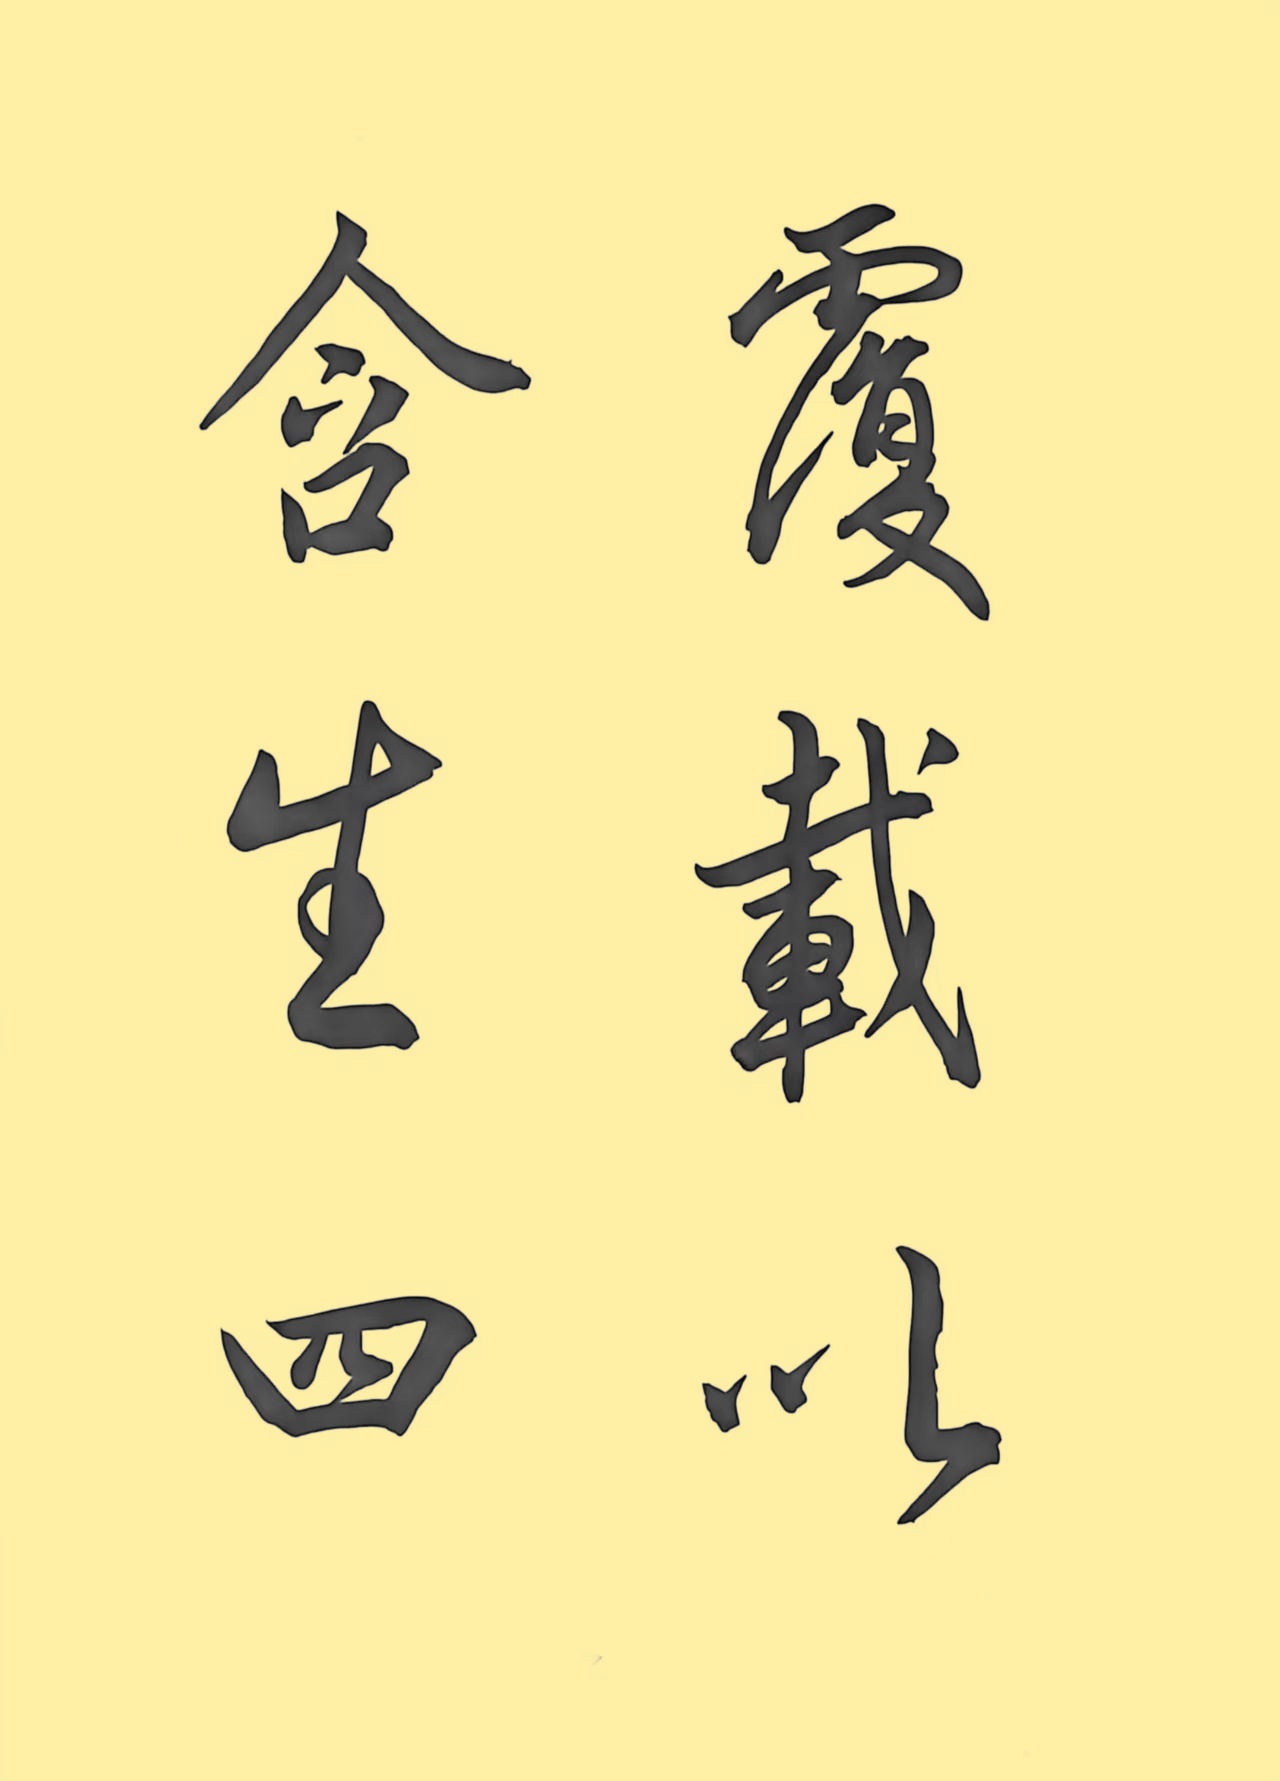 覆載以
含生四